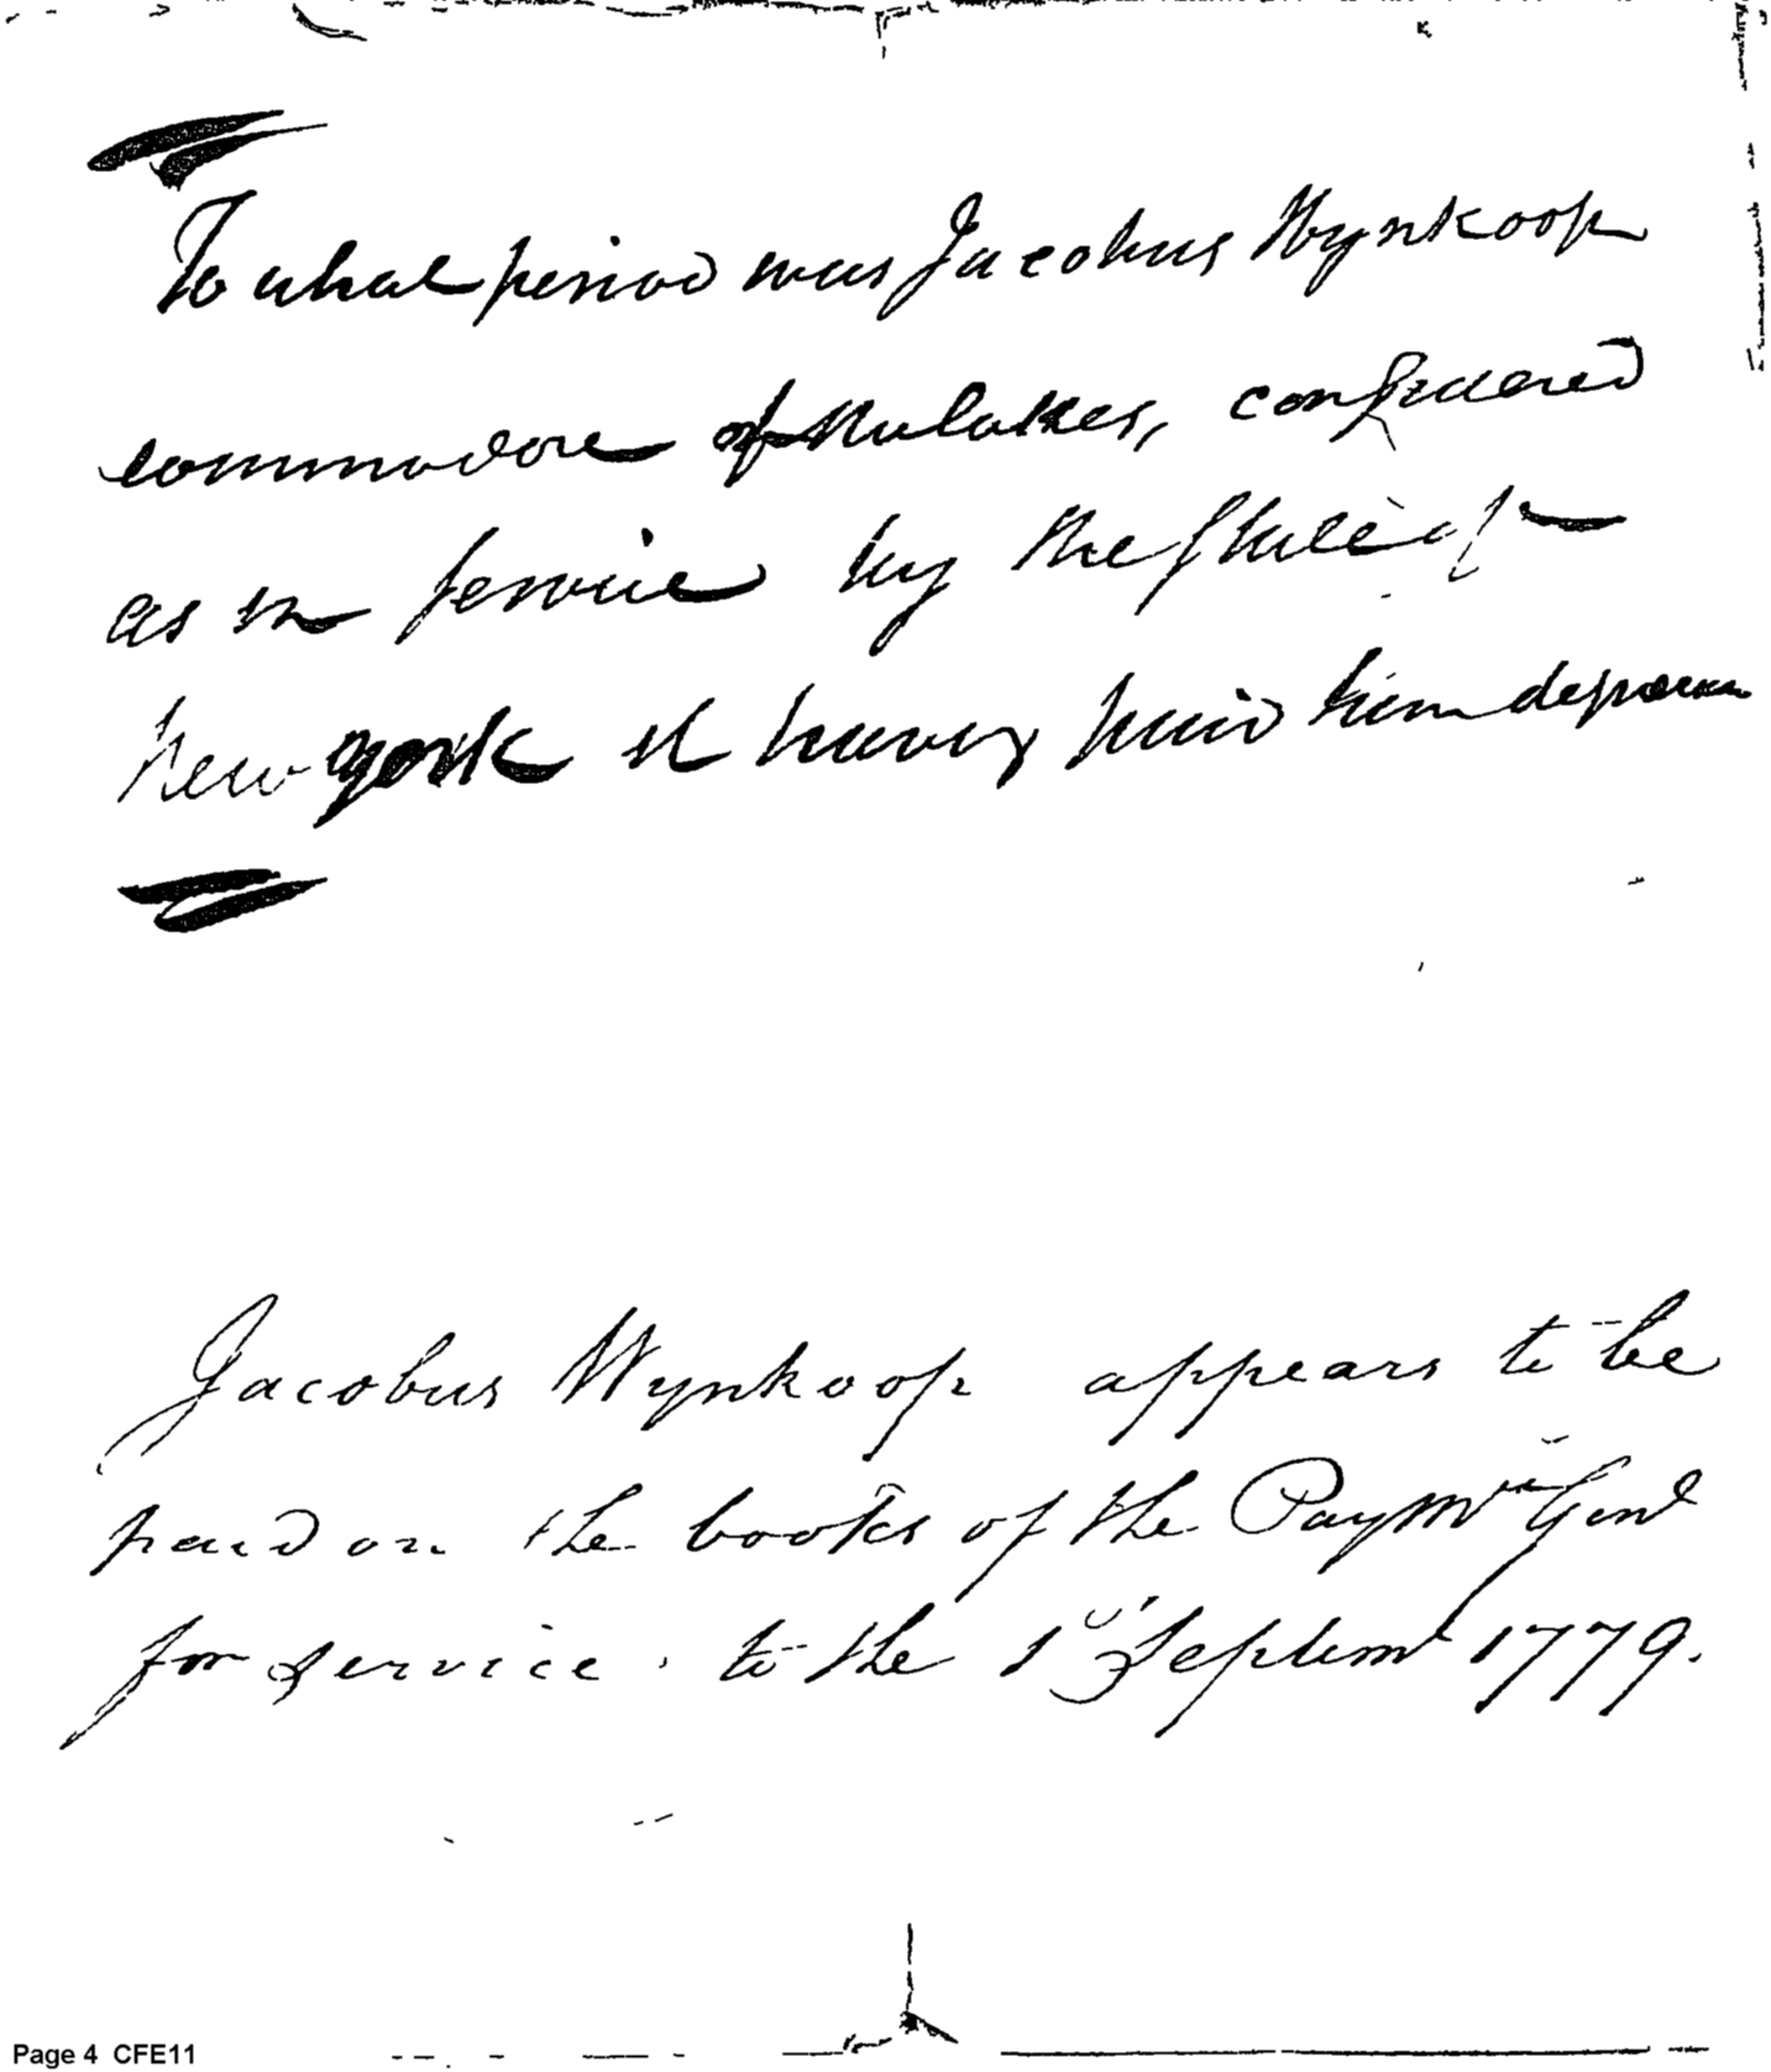 To what period was Jacobus Wynkoop
commodore of the lakes, considered
as in service by the State of
New-york it having paid him
Jacobus Wynkoop appears to be
paid on the books of the PayMr Genl
for service to the 1st Septemr 1779.
Page 4 CFE11